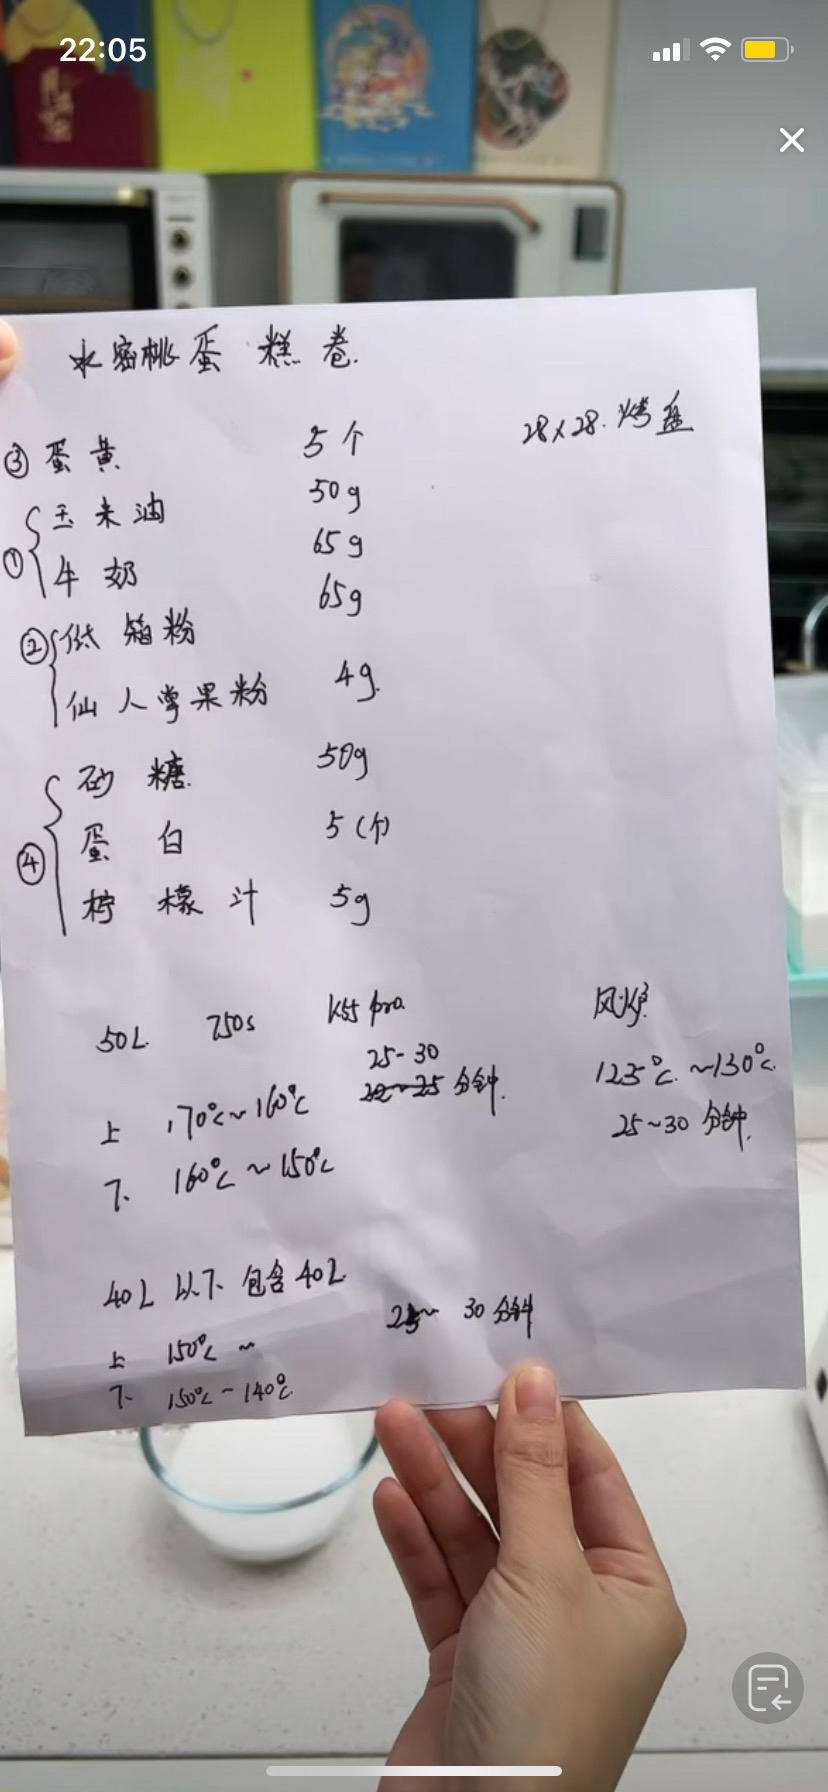 22:05
水密桃蛋糕卷.
28×28.烤盘
③蛋黄 5个
①{玉米油 50g
牛奶 65g
②{低筋粉 65g
仙人掌果粉 4g.
④{砂糖 50g
蛋白 5(个)
柠檬汁 5g
50L. 750s K55 pro. 风炉
25-30
上 170℃~160℃ 20~25 分钟. 125℃.~130℃.
下. 160℃~150℃ 25~30 分钟.
40L 以下包含40L
上 150℃ ~ 30分钟
下. 150℃~140℃.